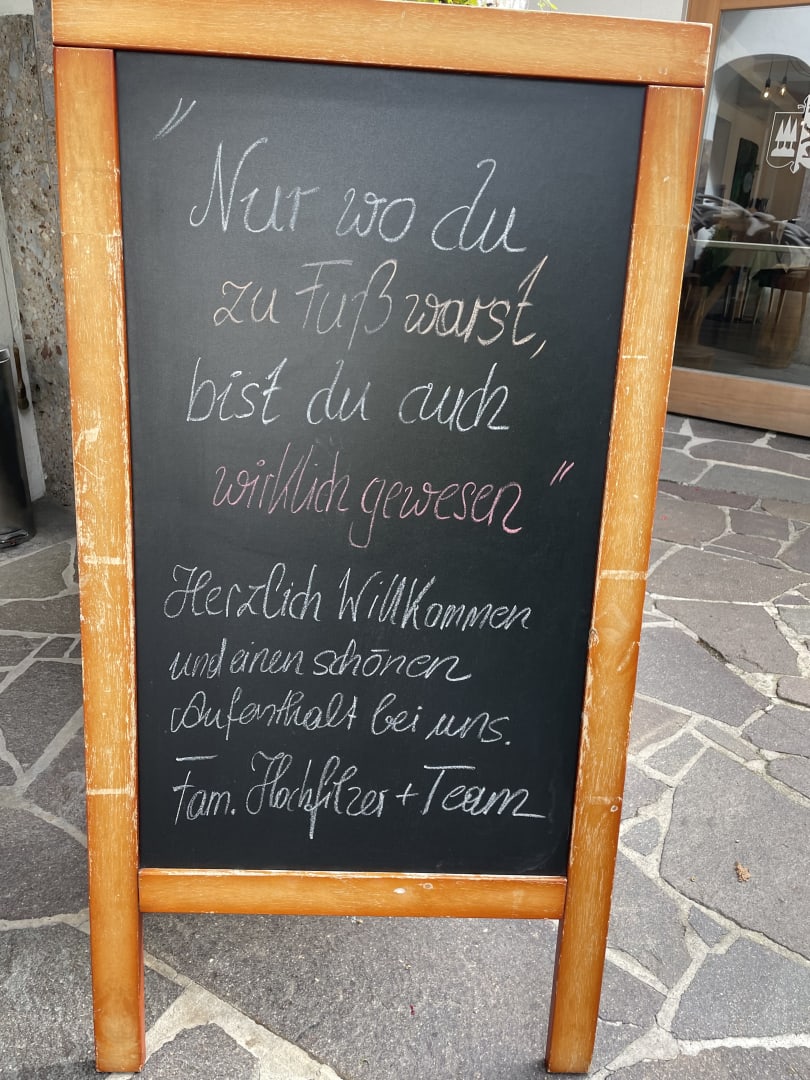 "Nur wo du
zu Fuß warst,
bist du auch
wirklich gewesen"
Herzlich Willkommen
und einen schönen
Aufenthalt bei uns.
Fam. Hochfilzer + Team